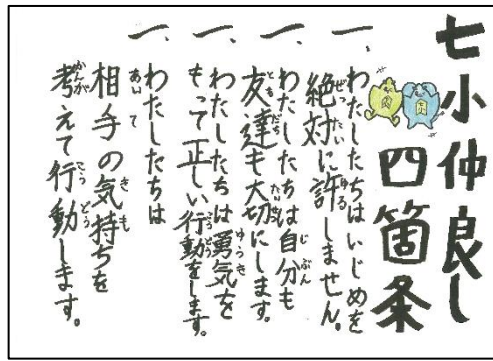 七小仲良し
四箇条
一、わたしたちはいじめを
絶対に許しません。
一、わたしたちは自分も
友達も大切にします。
一、わたしたちは勇気を
もって正しい行動をします。
一、わたしたちは
相手の気持ちを
考えて行動します。